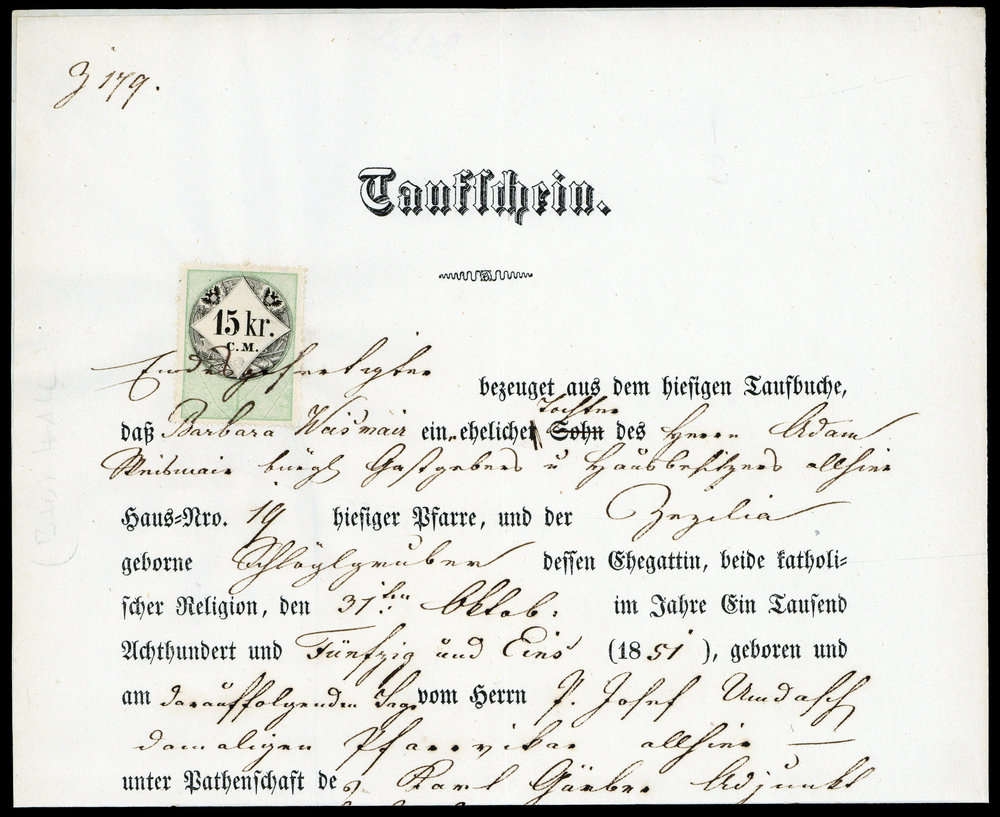 Z 179.
Taufschein.
15 kr.
C.M.
Endesgefertigter
bezeuget aus dem hiesigen Taufbuche,
Tochter
daß Barbara Weismair ein ehelicher Sohn des Herrn Adam
Weismair bürgl Gastgebers u Hausbesitzers allhier
Haus=Nro. 19 hiesiger Pfarre, und der Zezilia
geborne Schlöglgruber dessen Ehegattin, beide katholi=
scher Religion, den 31ten Oktob: im Jahre Ein Tausend
Achthundert und Fünfzig und Eins (1851), geboren und
am darauffolgenden Tage vom Herrn P. Josef Umdasch
damaligen Pfarrvikar allhier —
unter Pathenschaft des Karl Gärber Adjunkt